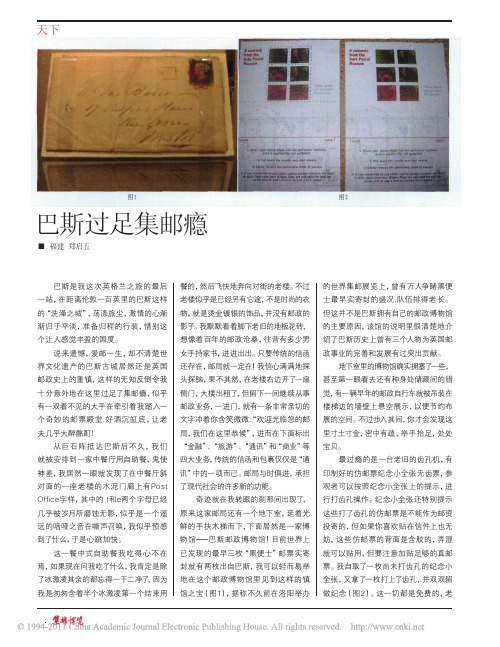 天下
A souvenir
from the
Bath Postal
Museum
A souvenir
from the
Bath Postal
Museum
图1
图2
巴斯过足集邮瘾
■ 福建 郑启五
巴斯是我这次英格兰之旅的最后
一站,在距离伦敦一百英里的巴斯这样
的“洗澡之城”,荡涤旅尘,激情的心渐
渐归于平淡,准备归程的行装,惜别这
个让人感觉丰盈的国度。
说来遗憾,爱邮一生,却不清楚世
界文化遗产的巴斯古城居然还是英国
邮政史上的重镇,这样的无知反倒令我
十分意外地在这里过足了集邮瘾,似乎
有一双看不见的大手在牵引着我踏入一
个奇妙的邮票殿堂,好酒沉缸底,让老
夫几乎大醉酩酊!
从巨石阵抵达巴斯后不久,我们
就被安排到一家中餐厅用自助餐,鬼使
神差,我居然一眼就发现了在中餐厅斜
对面的一座老楼的水泥门廊上有Post
Office字样,其中的t和e两个字母已经
几乎被岁月所磨蚀无影,似乎是一个遥
远的喑哑之音在嘶声召唤,我似乎预感
到了什么,于是心跳加快。
这一餐中式自助餐我吃得心不在
焉,如果现在问我吃了什么,我肯定是除
了冰激凌其余的都忘得一干二净了,因为
我是匆匆含着半个冰激凌第一个结束用
餐的,然后飞快地奔向对街的老楼。不过
老楼似乎是已经另有它途,不是时尚的衣
物,就是烫金镀银的饰品,并没有邮政的
影子。我默默看着脚下老旧的地板花砖,
想像着百年的邮政沧桑,往昔有多少男
女手持家书,进进出出。只要传统的信函
还存在,邮局就一定在!我信心满满地探
头探脑,果不其然,在老楼右边开了一扇
侧门,大楼出租了,但留下一间继续从事
邮政业务,一进门,就有一条非常亲切的
文字冲着你含笑微微:“欢迎光临您的邮
局,我们在这里恭候”,进而在下面标出
“金融”、“旅游”、“通讯”和“商业”等
四大业务,传统的信函和包裹仅仅是“通
讯”中的一项而已。邮局与时俱进,承担
了现代社会的许多新的功能。
奇迹就在我转眼的刹那间出现了,
原来这家邮局还有一个地下室,延着光
鲜的手扶木梯而下,下面居然是一家博
物馆——巴斯邮政博物馆!目前世界上
已发现的最早三枚“黑便士”邮票实寄
封就有两枚出自巴斯,我可以轻而易举
地在这个邮政博物馆里见到这样的镇
馆之宝(图1),据称不久前在洛阳举办
的世界集邮展览上,曾有万人争睹黑便
士最早实寄封的盛况,队伍排得老长。
但这并不是巴斯拥有自己的邮政博物馆
的主要原因,该馆的说明里很清楚地介
绍了巴斯历史上曾有三个人物为英国邮
政事业的完善和发展有过突出贡献。
地下室里的博物馆确实拥塞了一些,
甚至第一眼看去还有种身处储藏间的错
觉,有一辆早年的邮政自行车就被吊装在
楼梯边的墙壁上悬空展示,以便节约布
展的空间。不过步入其间,你才会发现这
里寸土寸金,密中有疏,举手抬足,处处
宝贝。
最过瘾的是一台老旧的齿孔机,有
印制好的仿邮票纪念小全张无齿票,参
观者可以按照纪念小全张上的提示,进
行打齿孔操作。纪念小全张还特别提示
这些打了齿孔的仿邮票是不能作为邮资
投寄的,但如果你喜欢贴在信件上也无
妨,这些仿邮票的背面是含胶的,弄湿
就可以贴用,但要注意加贴足够的真邮
票。我自取了一枚尚未打齿孔的纪念小
全张,又拿了一枚打上了齿孔,并双双留
做纪念(图2)。这一切都是免费的,老
集邮博览
© 1994-2011 China Academic Journal Electronic Publishing House. All rights reserved. http://www.cnki.net